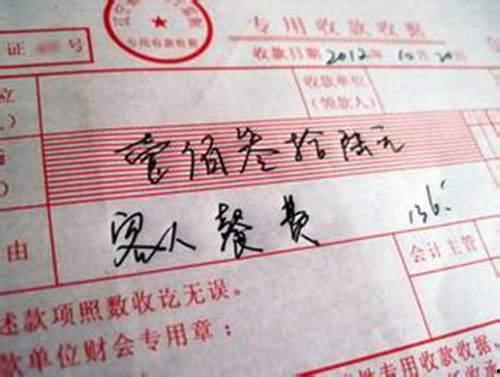 专用收款收据
专用收款收据
证 号
收款日期 2012年 10月 20日
收款单位
(领款人)
壹佰叁拾陆元
由 客人餐费 136.
会计主管
述款项照数收讫无误。
款单位财会专用章:
性专用收款收据